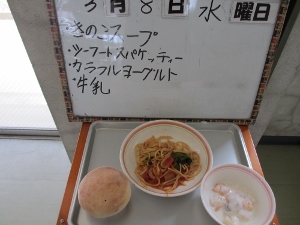 3月8日水曜日
きのこスープ
・シーフードスパゲッティー
・カラフルヨーグルト
・牛乳